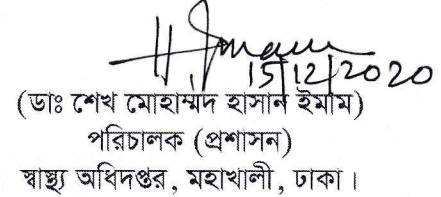 15/12/2020
(ডাঃ শেখ মোহাম্মদ হাসান ইমাম)
পরিচালক (প্রশাসন)
স্বাস্থ্য অধিদপ্তর, মহাখালী, ঢাকা।